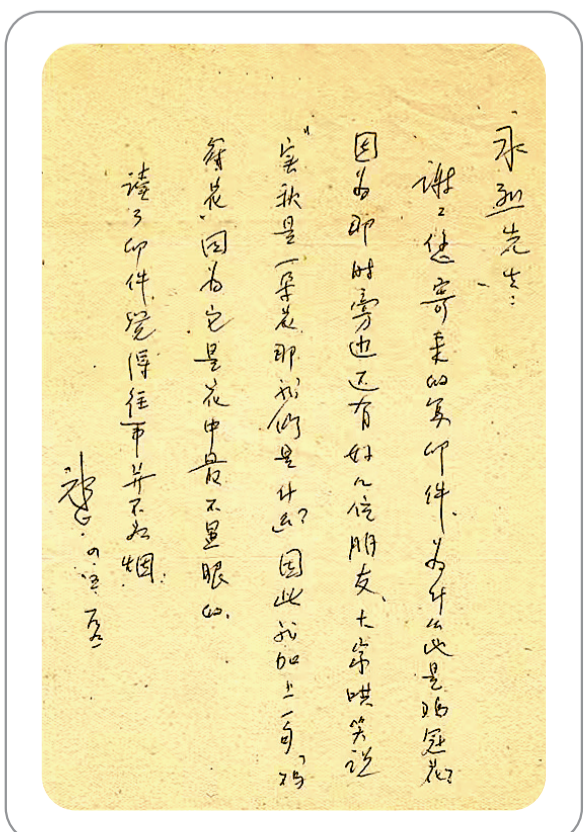 永烈先生:
谢谢您寄来的复印件、为什么说是鸡冠花?
因为那时旁边还有好几位朋友、大家哄笑说
“实秋是一朵花那我们是什么?因此我加上一句、“鸡
冠花、因为它是花中最不显眼的、
读了印件觉得往事并不如烟.